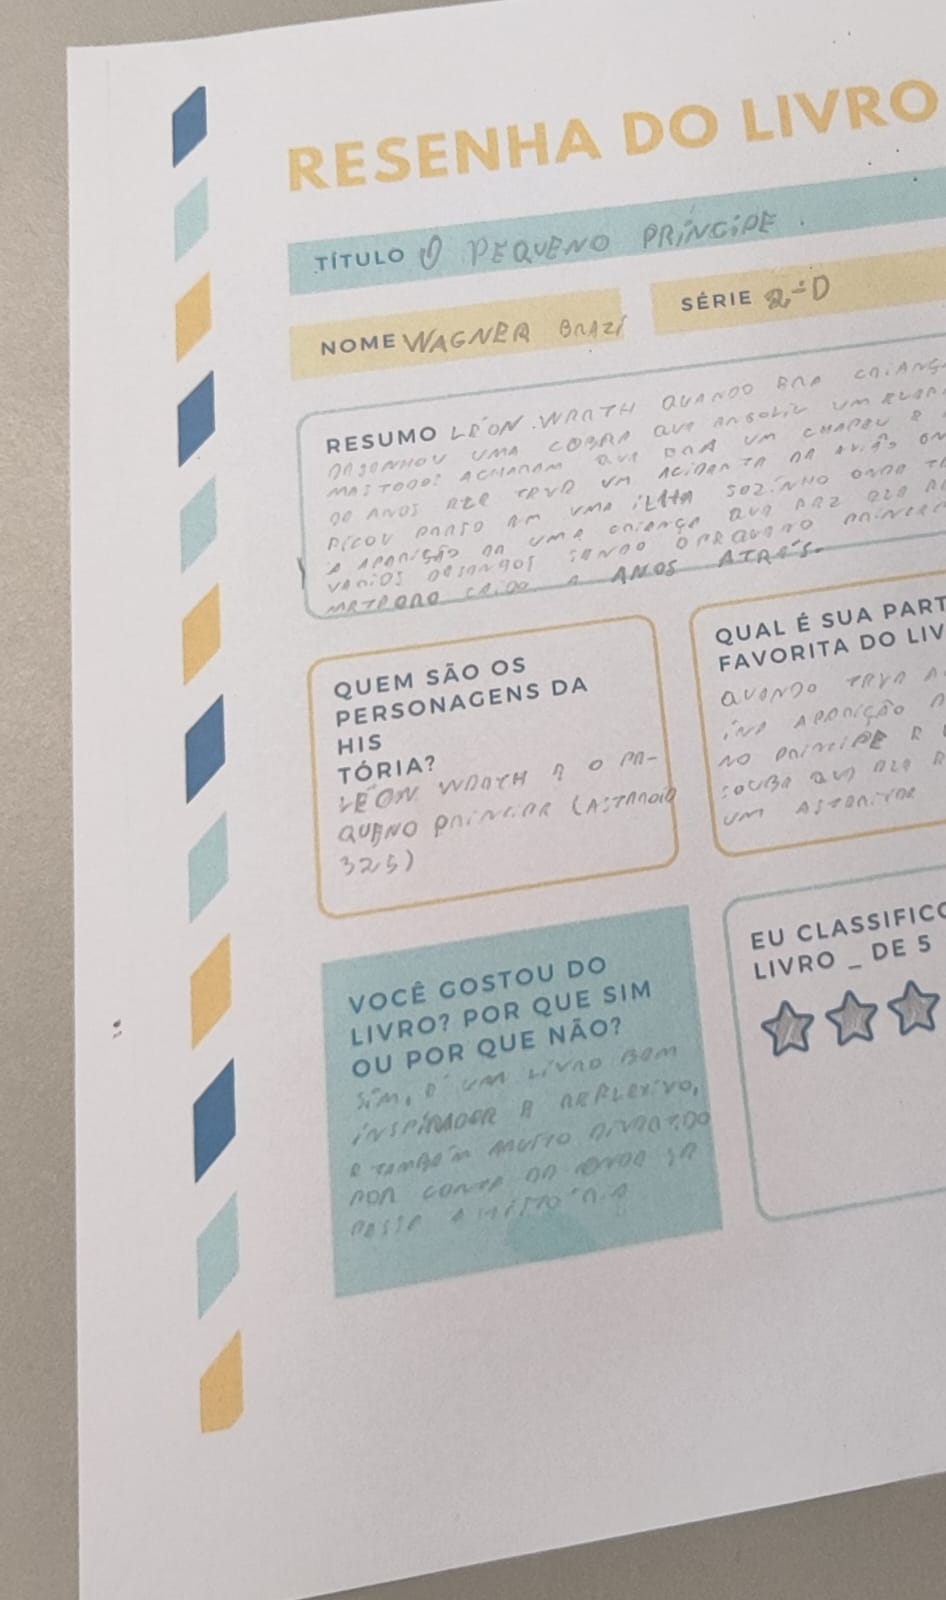 RESENHA DO LIVRO
TÍTULO O PEQUENO PRÍNCIPE.
NOME WAGNER BRAZI
SÉRIE 2ªD
RESUMO LÉON.WERTH QUANDO ERA CRIANÇ
DESENHOU UMA COBRA QUE ENGOLIU UM ELEFA
MAS TODOS ACHARAM QUE ERA UM CHAPEU E
DE AVIÃO ON
FICOU PRESO EM UMA ILHA SOZINHO ONDE TE
A APARIÇÃO DE UMA CRIANÇA QUE FAZ ELE
VARIOS DESENHOS SENDO O PEQUENO PRINCE
CAIDO A ANOS ATRÁS.
QUEM SÃO OS
PERSONAGENS DA
HIS
TÓRIA?
LÉON WERTH E O PE-
QUENO PRINCIPE (ASTEROID
325)
QUAL É SUA PART
FAVORITA DO LIV
QUANDO TEVE A
APARIÇÃO D
NO PRINCIPE E
SOUBE QUE ELE
UM ASTEROIDE
VOCÊ GOSTOU DO
LIVRO? POR QUE SIM
OU POR QUE NÃO?
SIM, É UM LIVRO BEM
INSPIRADOR E REFLEXIVO,
E TAMBÉM MUITO DIVERTIDO
POR CONTA DE ONDE SE
PASSA A HISTÓRIA
EU CLASSIFICO
LIVRO _ DE 5